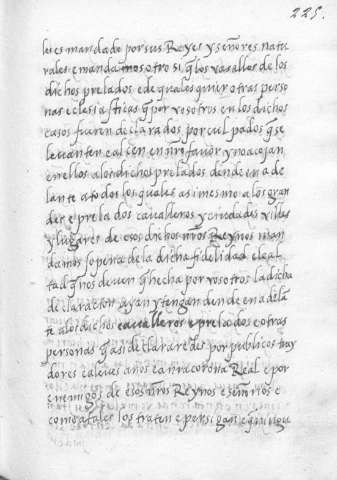 225.
les es mandado por sus Reyes y señores natu
rales e mandamos otro si q̃ los vasallos de los
dichos prelados e de quales quier otras perso
nas eclesiasticas q̃ por vosotros en los dichos
casos fueren declarados por culpados q̃ se
levanten e alcen en nr̃o favor y no acojan
en ellos a los dichos prelados dende en ade
lante a todos los quales asi mesmo a los gran
des e prelados cavalleros y ciudades villas
y lugares de esos dichos nr̃os Reynos man
damos so pena de la dicha fidelidad e leal
tad q̃ nos deven q̃ hecha por vosotros la dicha
declaracion ayan y tengan dende en adelan
te a los dichos cavalleros e prelados e otras
personas q̃ asi declararedes por publicos tray
dores e aleves a nr̃a corona Real e por
enemigos de esos nr̃os Reynos e señorios e
como a tales los traten e persigan e q̃ ningu